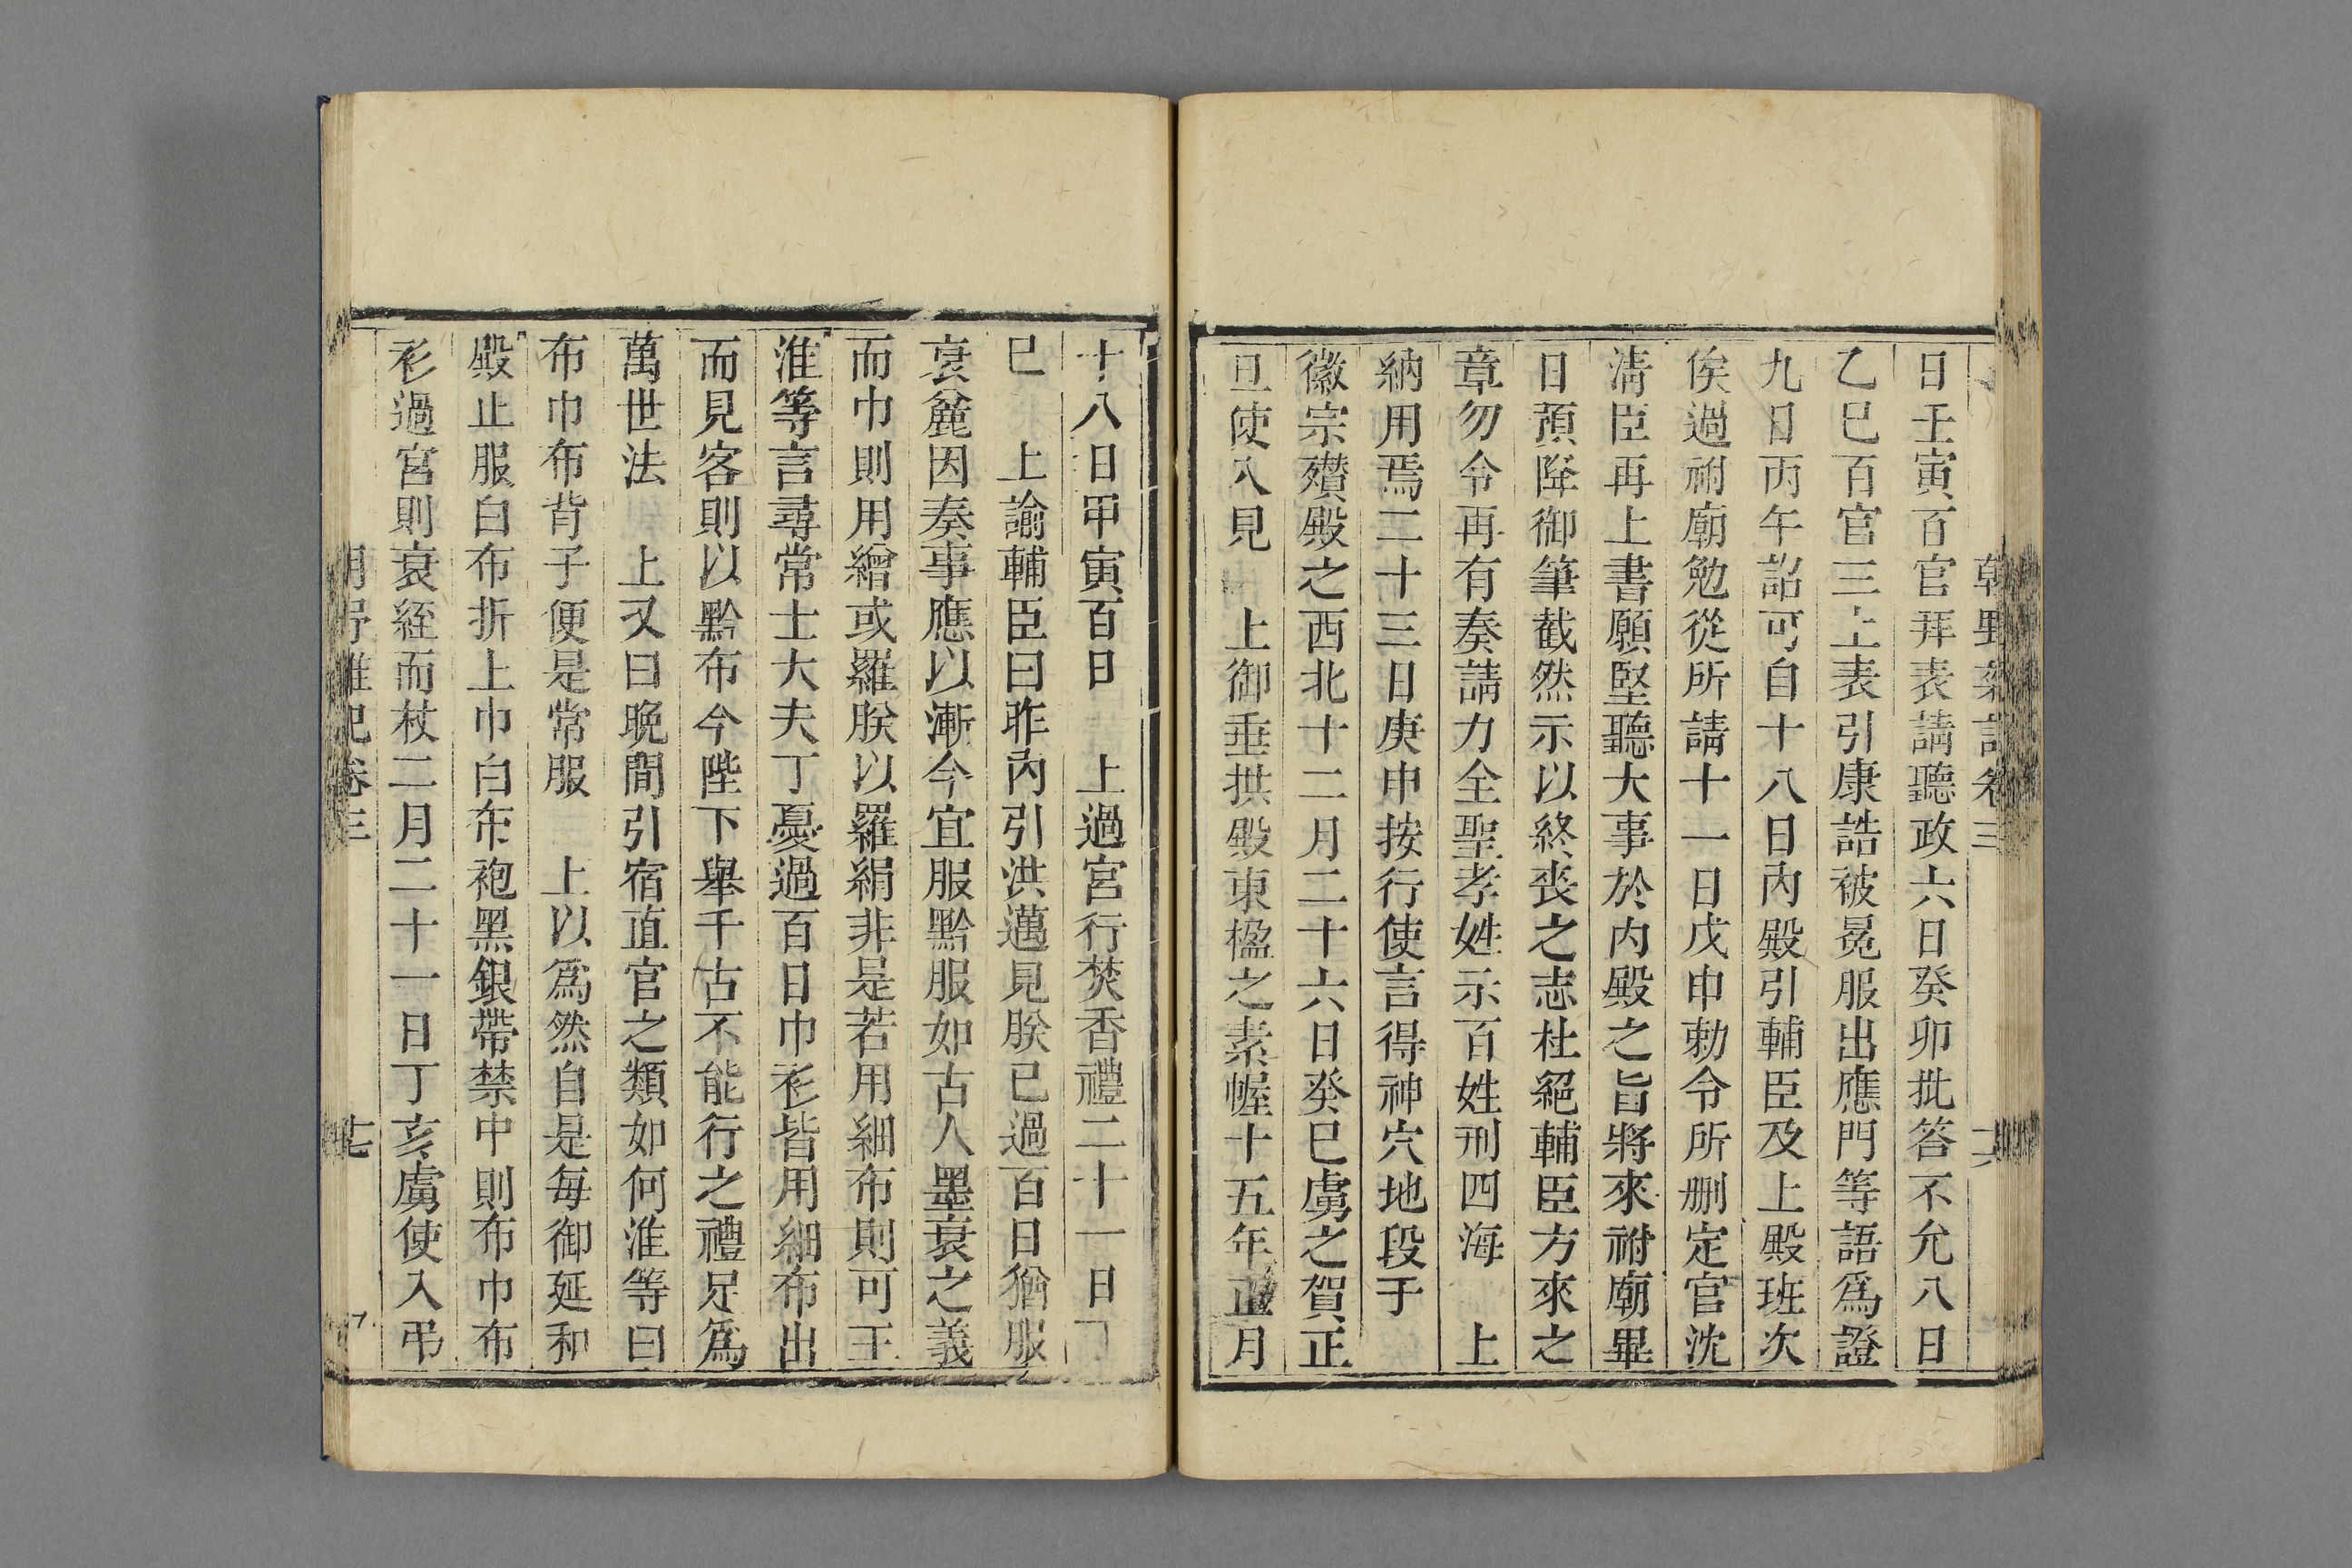 朝野雜記卷三
十六
日壬寅百官拜表請聽政六日癸卯批答不允八日
乙巳百官三上表引康誥被冕服出應門等語爲證
九日丙午詔可自十八日內殿引輔臣及上殿班次
俟過祔廟勉從所請十一日戊申勅令所刪定官沈
淸臣再上書願堅聽大事於內殿之旨將來祔廟畢
日預降御筆截然示以終喪之志杜絕輔臣方來之
章勿令再有奏請力全聖孝姓示百姓刑四海　上
納用焉二十三日庚申按行使言得神穴地段于
徽宗殯殿之西北十二月二十六日癸巳虜之賀正
旦使入見　上御垂拱殿東楹之素幄十五年正月
十八日甲寅百日　上過宮行焚香禮二十一日丁
巳　上諭輔臣曰昨內引洪邁見朕已過百日猶服
衰麄因奏事應以漸今宜服黲服如古人墨衰之義
而巾則用繒或羅朕以羅絹非是若用細布則可王
淮等言尋常士大夫丁憂過百日巾衫皆用細布出
而見客則以黲布今陛下舉千古不能行之禮足爲
萬世法　上又曰晚間引宿直官之類如何淮等曰
布巾布背子便是常服　上以爲然自是每御延和
殿止服白布折上巾白布袍黑銀帶禁中則布巾布
衫過宮則衰絰而杖二月二十一日丁亥虜使入弔
朝野雜記卷三
十七